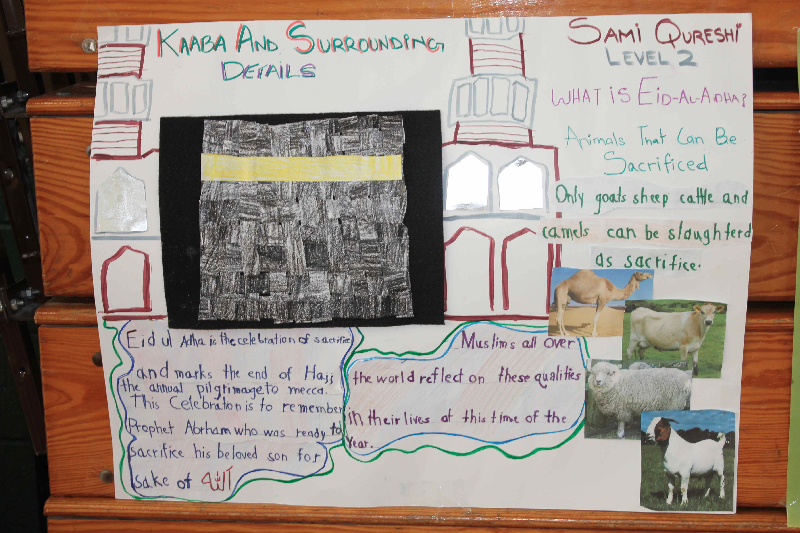 KAABA AND SURROUNDING
DETAILS
SAMI QURESHI
LEVEL 2
WHAT IS EID-AL-ADHA?
Animals That Can Be
Sacrificed
Only goats sheep cattle and
camels can be slaughterd
as sacrifice.
Eid ul Adha is the celebration of sacrifice
and marks the end of Hajj
the annual pilgrimage to mecca.
This Celebration is to remember
Prophet Abraham who was ready to
sacrifice his beloved son for
sake of الله
Muslims all over
the world reflect on these qualities
in their lives at this time of the
year.